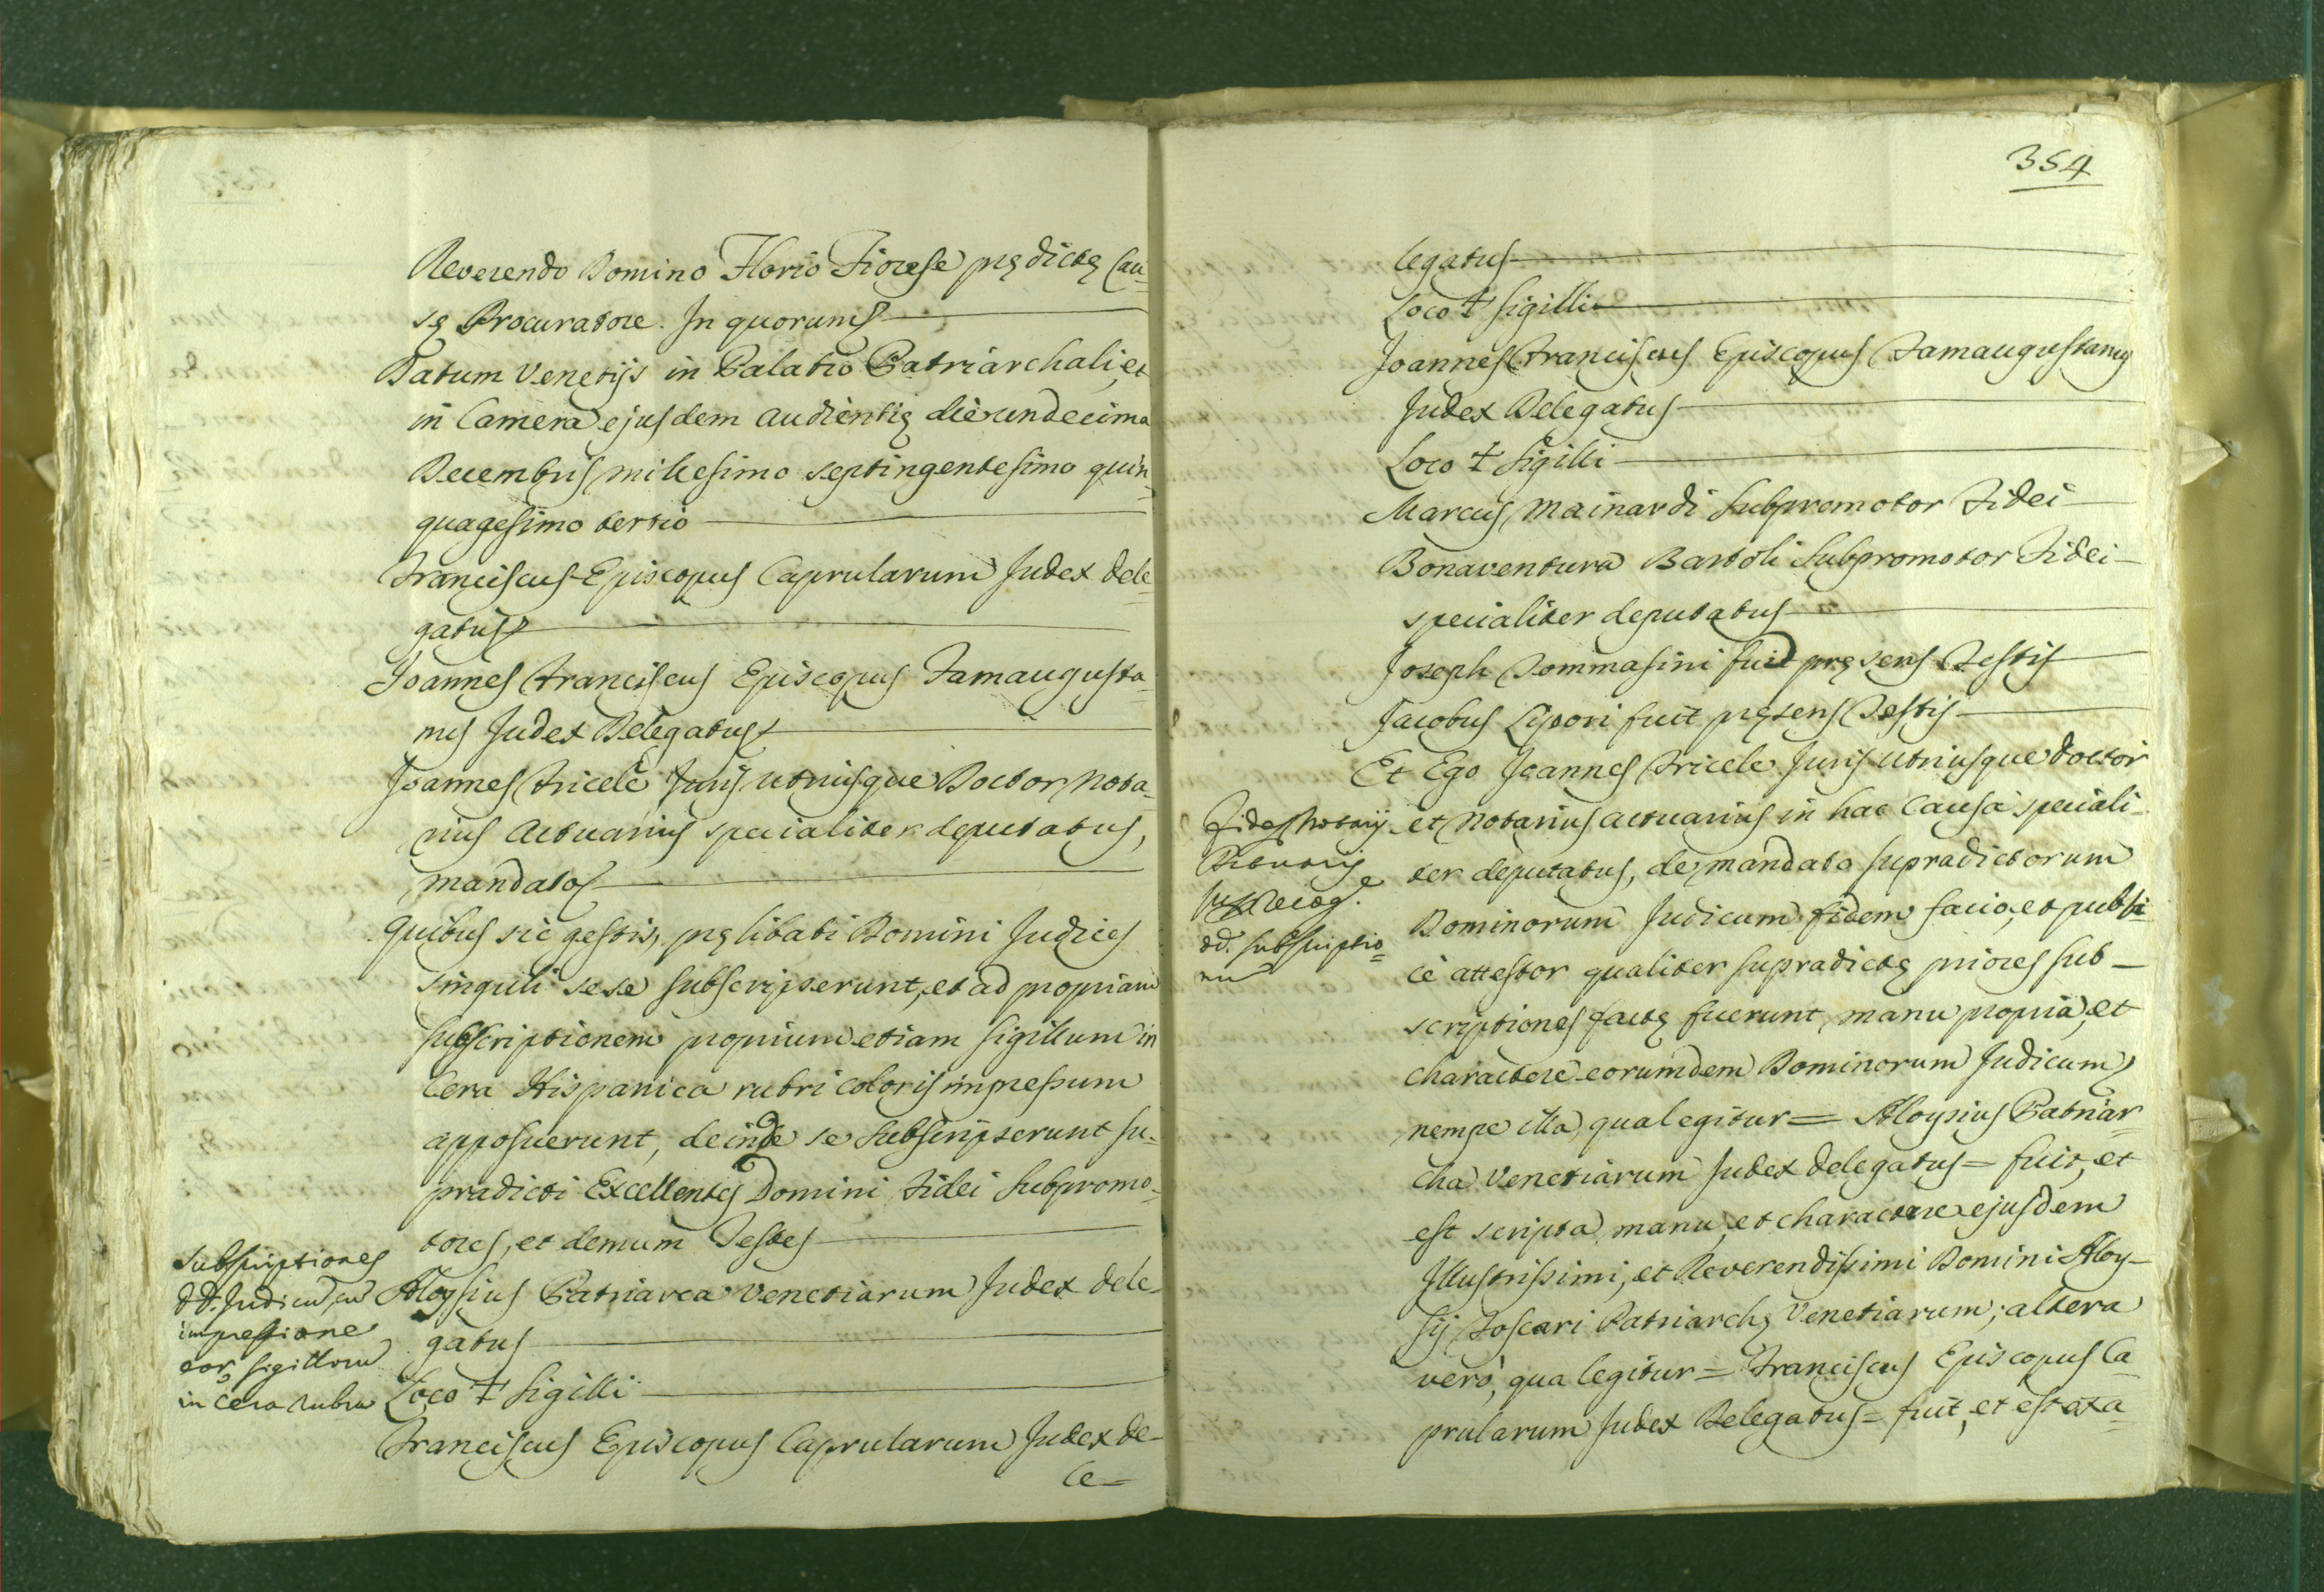 Reverendo Domino Florio Fiorese prędictę Cau-
sę Procuratore. In quorum
Datum Venetijs in Palatio Patriarchali, et
in Camera ejusdem audientię die undecima
Decembris millesimo septingentesimo quin-
quagesimo tertio
Franciscus Episcopus Caprularum Judex dele-
gatus
Joannes Franciscus Episcopus Famaugusta-
nus Judex Delegatus
Joannes Tricele Juris utriusque Doctor Nota-
rius Actuarius specialiter deputatus,
mandato
Quibus sic gestis, pręlibati Domini Judices
singuli sese subscripserunt, et ad propriam
subscriptionem proprium etiam sigillum in
Cera Hispanica rubri coloris impressum
apposuerunt, deinde se subscripserunt su-
pradicti Excellentes Domini Fidei Subpromo-
tores, et demum Testes
Subscriptiones
dd. Judicu cu
impressione
eor sigilloru
in cera rubra
Aloysius Patriarca Venetiarum Judex dele-
gatus
Loco + Sigilli
Franciscus Episcopus Caprularum Judex de-
le-
354
legatus
Loco + Sigilli
Joannes Franciscus Episcopus Famaugustanus
Judex Delegatus
Loco + Sigilli
Marcus Mainardi Subpromotor Fidei
Bonaventura Bartoli Subpromotor Fidei
specialiter deputatus
Joseph Tommasini fuit pręsens Testis
Jacobus Lipori fuit pręsens Testis
Et Ego Joannes Tricele Juris utriusque doctor
Fides Notarij
Actuarij
dd. subscriptio-
nu
et Notarius actuarius in hac Causa speciali-
ter deputatus, de mandato supradictorum
Dominorum Judicum fidem facio, et publi-
cè attestor qualiter supradictę priores sub-
scriptiones factę fuerunt manu propria, et
charactere eorumdem Dominorum Judicum
nempe illa, qua legitur = Aloysius Patriar-
cha Venetiarum Judex delegatus = fuit, et
est scripta manu, et charactere ejusdem
Illustrissimi, et Reverendissimi Domini Aloy-
sij Foscari Patriarchę Venetiarum; altera
verò, qua legitur = Franciscus Episcopus Ca-
prularum Judex Delegatus = fuit, et est exa-